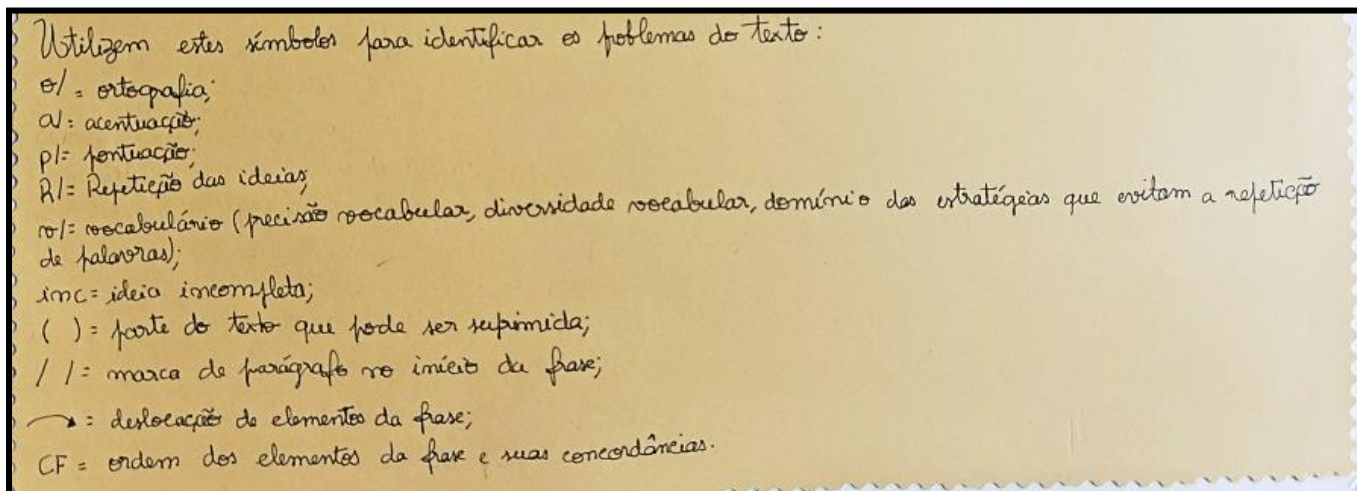 Utilizem estes símbolos para identificar os problemas do texto:
o/= ortografia;
a/= acentuação;
p/= pontuação;
R/= Repetição das ideias;
v/= vocabulário (precisão vocabular, diversidade vocabular, domínio das estratégias que evitam a repetição
de palavras);
inc= ideia incompleta;
( )= parte do texto que pode ser suprimida;
/ /= marca de parágrafo no início da frase;
→= deslocação de elementos da frase;
CF = ordem dos elementos da frase e suas concordâncias.